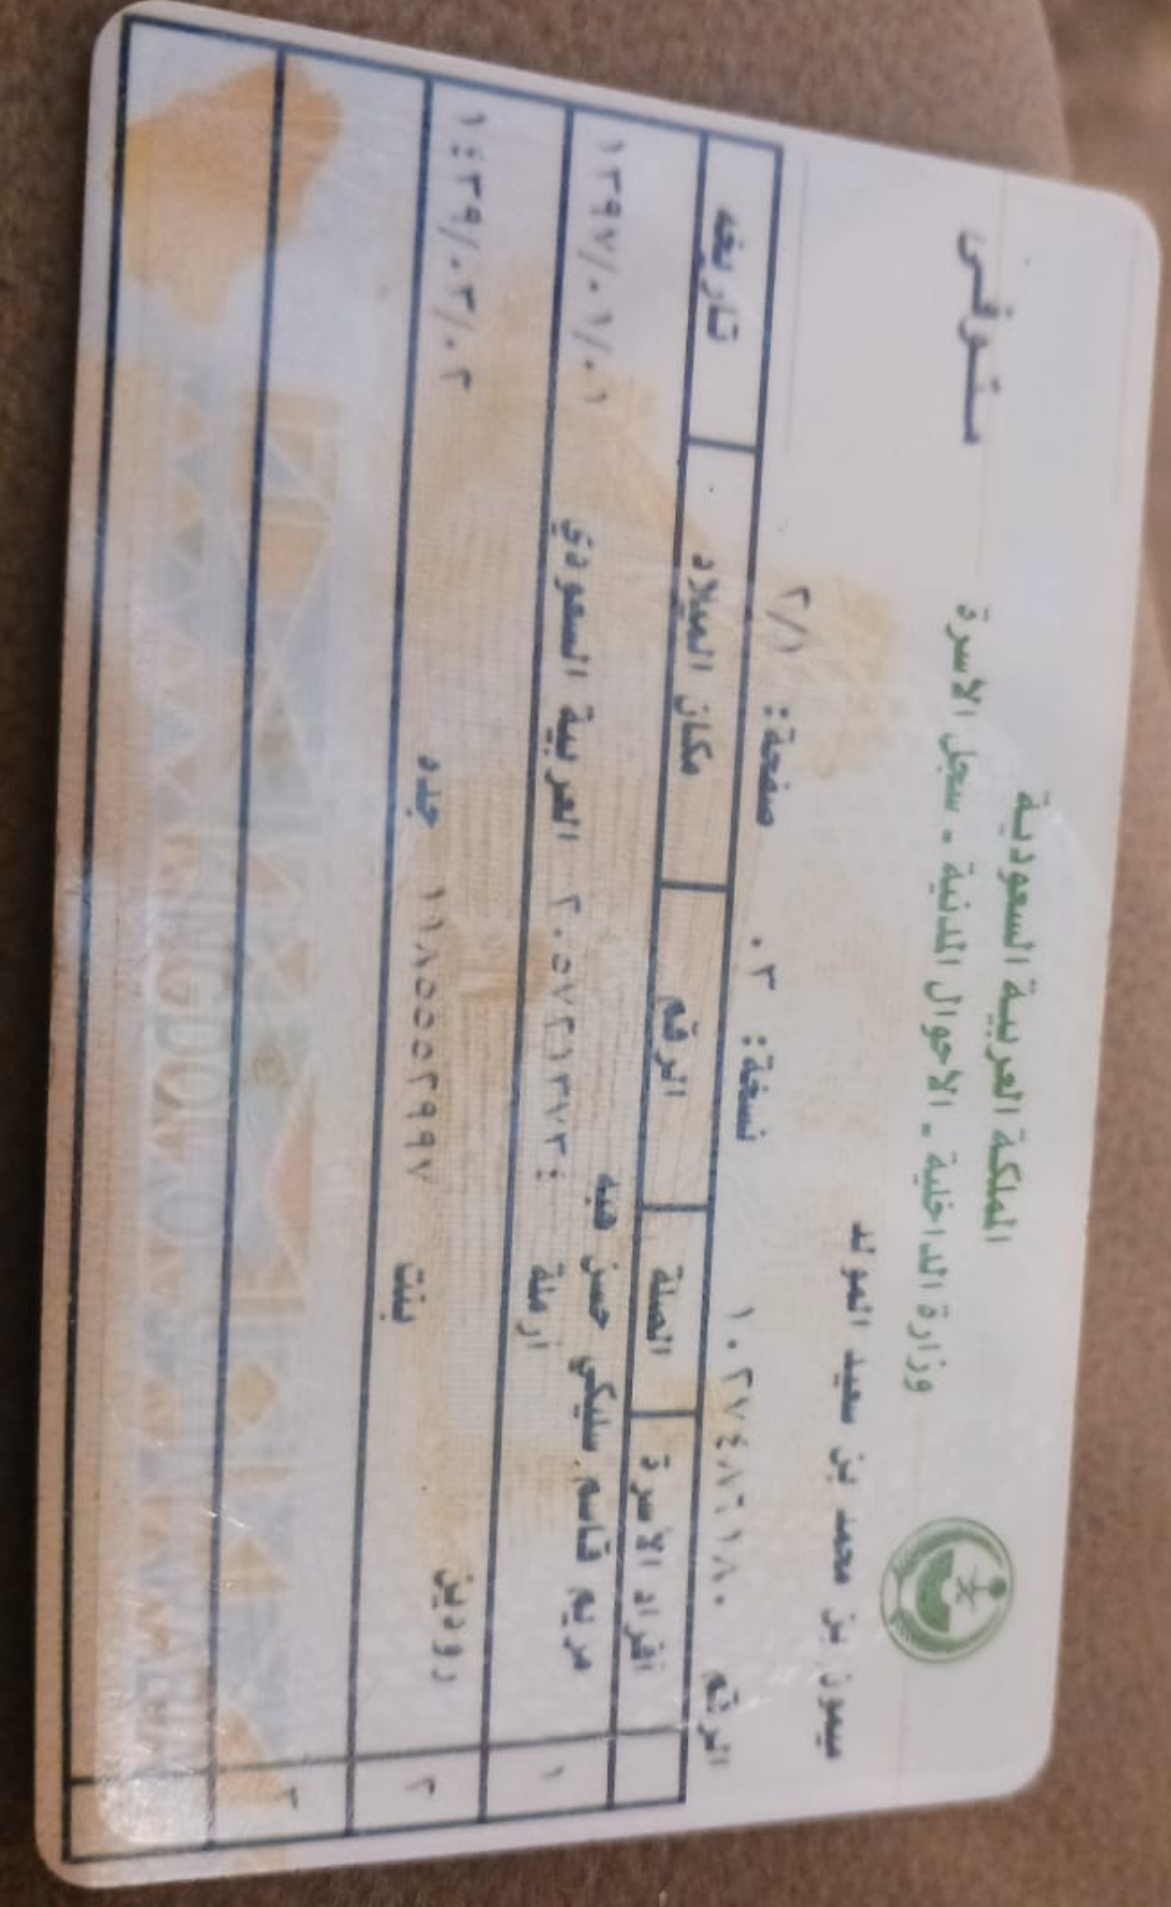 المملكة العربية السعودية
وزارة الداخلية - الأحوال المدنية - سجل الأسرة
متوفى
ميمون بن محمد بن سعيد المولد
الرقم ١٠٢٧٤٨٦١٨٠ نسخة: ٠٣ صفحة: ٢/١
أفراد الأسرة الصلة الرقم مكان الميلاد تاريخه
١ مريم قاسم سليكي حسن هبه أرملة ٢٠٥٧٢١٣٧٣٤ العربية السعودي ١٣٩٧/٠١/٠١
٢ رودين بنت ١١٨٥٥٥٢٩٩٧ جده ١٤٣٩/٠٣/٠٢
٣